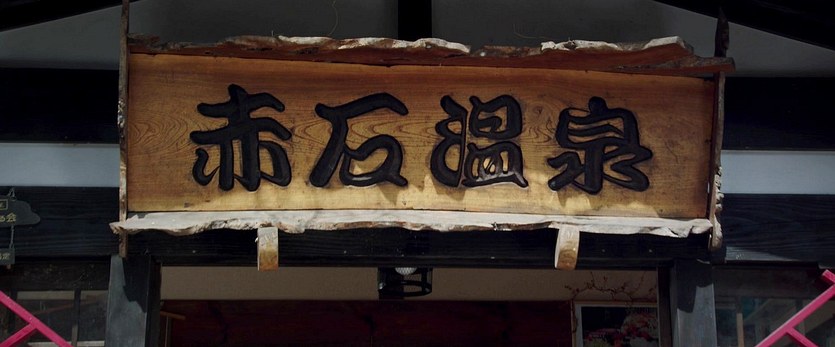 赤石温泉